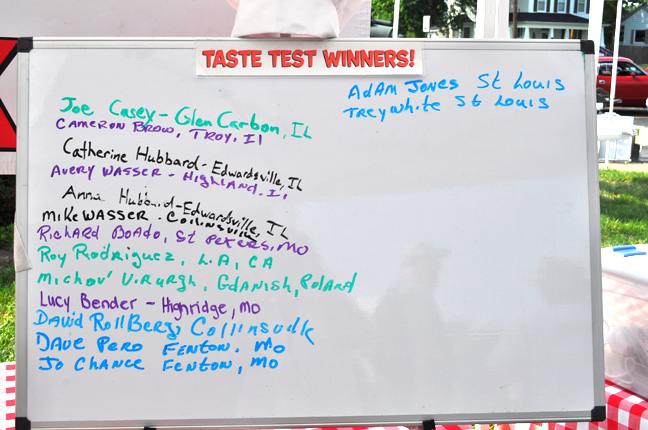 TASTE TEST WINNERS!
Joe Casey - Glen Carbon, IL
CAMERON BROW, TROY, Il
Catherine Hubbard - Edwardsville, IL
AVERY WASSER - HIGHLAND, Il
Anna Hubbard - Edwardsville, IL
MIKE WASSER - Collinsville
RICHARD BOADO, St PETERS, MO
Roy Rodriguez, L.A, CA
Gdanish, Poland
Lucy Bender - Highridge, MO
DAVID RollBerg, Collinsville
DAVE PERO FENTON, MO
JO CHANCE FENTON, MO
ADAM JONES St LOUIS
TREY WHITE St LOUIS